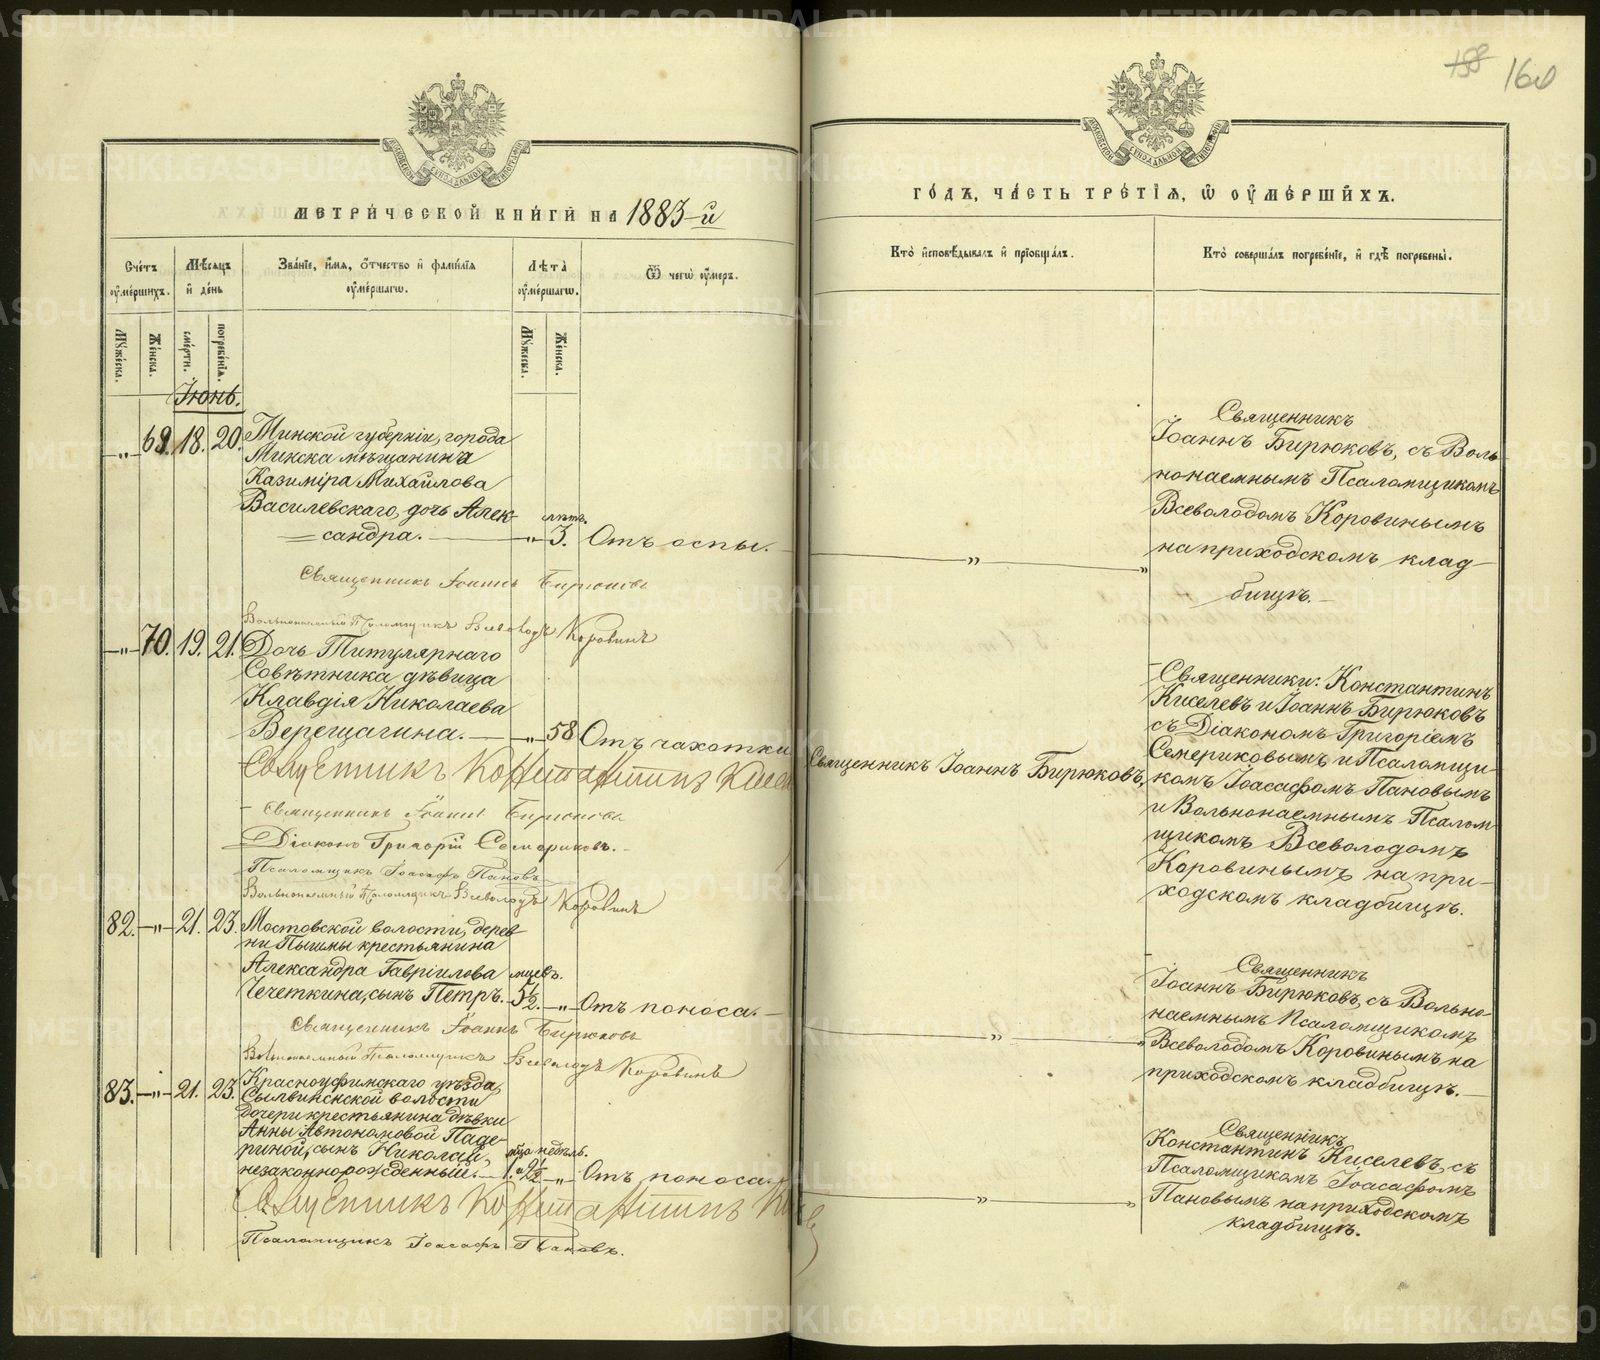 158 160
МЕТРИ́ЧЕСКОЙ КНИ́ГИ НА 1883-й
ГО́ДЪ, ЧА́СТЬ ТРЕ́ТІЯ, Ѿ ОУМЕ́РШИХЪ.
Сче́тъ оуме́ршихъ.
Мѣсяцъ и де́нь
Зва́ніе, и́мя, о́тчество и фами́лія оуме́ршагѡ.
Лѣта̀ оуме́ршагѡ.
Ѿ чегѡ̀ оу́меръ.
Кто̀ исповѣ́дывалъ и пріобща́лъ.
Кто̀ соверша́лъ погребе́ніе, и гдѣ̀ погребены̀.
Му́жеска.
Же́нска.
сме́рти.
погребе́нія.
Му́жеска.
Же́нска.
Іюнь.
-„- 69. 18. 20. Минской губерніи, города
Минска мѣщанина
Казиміра Михайлова
Василевскаго, дочь Алек-
сандра. -„- лѣтъ. 3. Отъ оспы.
Священникъ Іоаннъ Бирюковъ
Вольнонаемный Псаломщикъ Всеволодъ Коровинъ
„
Священникъ
Іоаннъ Бирюковъ, съ Воль-
нонаемнымъ Псаломщикомъ
Всеволодомъ Коровинымъ
на приходскомъ клад-
бищѣ.
-„- 70. 19. 21. Дочь Титулярнаго
Совѣтника дѣвица
Клавдія Николаева
Верещагина. -„- 58 Отъ чахотки
Священникъ Константинъ Кисел
Священникъ Іоаннъ Бирюковъ
Діаконъ Григорій Семериковъ.
Псаломщикъ Іоасафъ Пановъ
Вольнонаемный Псаломщикъ Всеволодъ Коровинъ
Священникъ Іоаннъ Бирюковъ,
Священники: Константинъ
Киселевъ и Іоаннъ Бирюковъ
съ Діакономъ Григоріемъ
Семериковымъ и Псаломщи-
комъ Іоасафомъ Пановымъ
и Вольнонаемнымъ Псалом-
щикомъ Всеволодомъ
Коровинымъ на при-
ходскомъ кладбищѣ.
82. -„- 21. 23. Мостовской волости, дерев-
ни Пышмы крестьянина
Александра Гавріилова
Чечеткина, сынъ Петръ. мцевъ. 5½. -„- Отъ поноса.
Священникъ Іоаннъ Бирюковъ
Вольнонаемный Псаломщикъ Всеволодъ Коровинъ
„
Священникъ
Іоаннъ Бирюковъ, съ Вольно-
наемнымъ Псаломщикомъ
Всеволодомъ Коровинымъ на
приходскомъ кладбищѣ.
83. -„- 21. 23. Красноуфимскаго уѣзда,
Сылвинской волости
дочери крестьянина дѣвки
Анны Автономовой Паде-
риной, сынъ Николай,
незаконнорожденный. 1. и 2½ недѣль. -„- Отъ поноса.
Священникъ Константинъ Кисе
Псаломщикъ Іоасафъ Пановъ.
„
Священникъ
Константинъ Киселевъ, съ
Псаломщикомъ Іоасафомъ
Пановымъ на приходскомъ
кладбищѣ.
METRIKI.GASO-URAL.RU